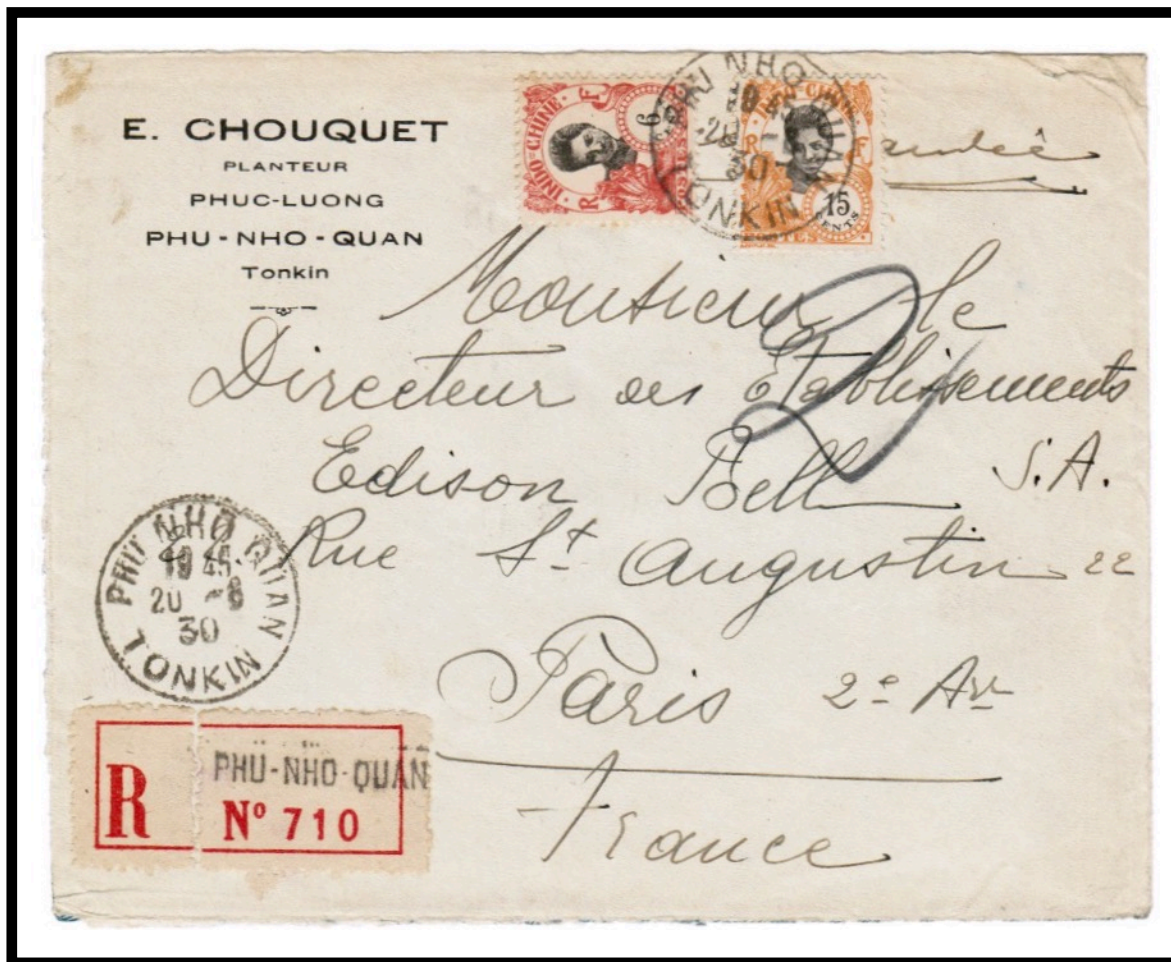 E. CHOUQUET
PLANTEUR
PHUC-LUONG
PHU-NHO-QUAN
Tonkin
INDO-CHINE
R F
6
POSTES
PHU NHO QUAN
20
30
TONKIN
INDO-CHINE
R F
15
CENTS
POSTES
Monsieur le
Directeur des Etablissements
Edison Bell S.A.
Rue St Augustin 22
Paris 2e Arr
France
PHU NHO QUAN
20
30
TONKIN
R
PHU-NHO-QUAN
No 710